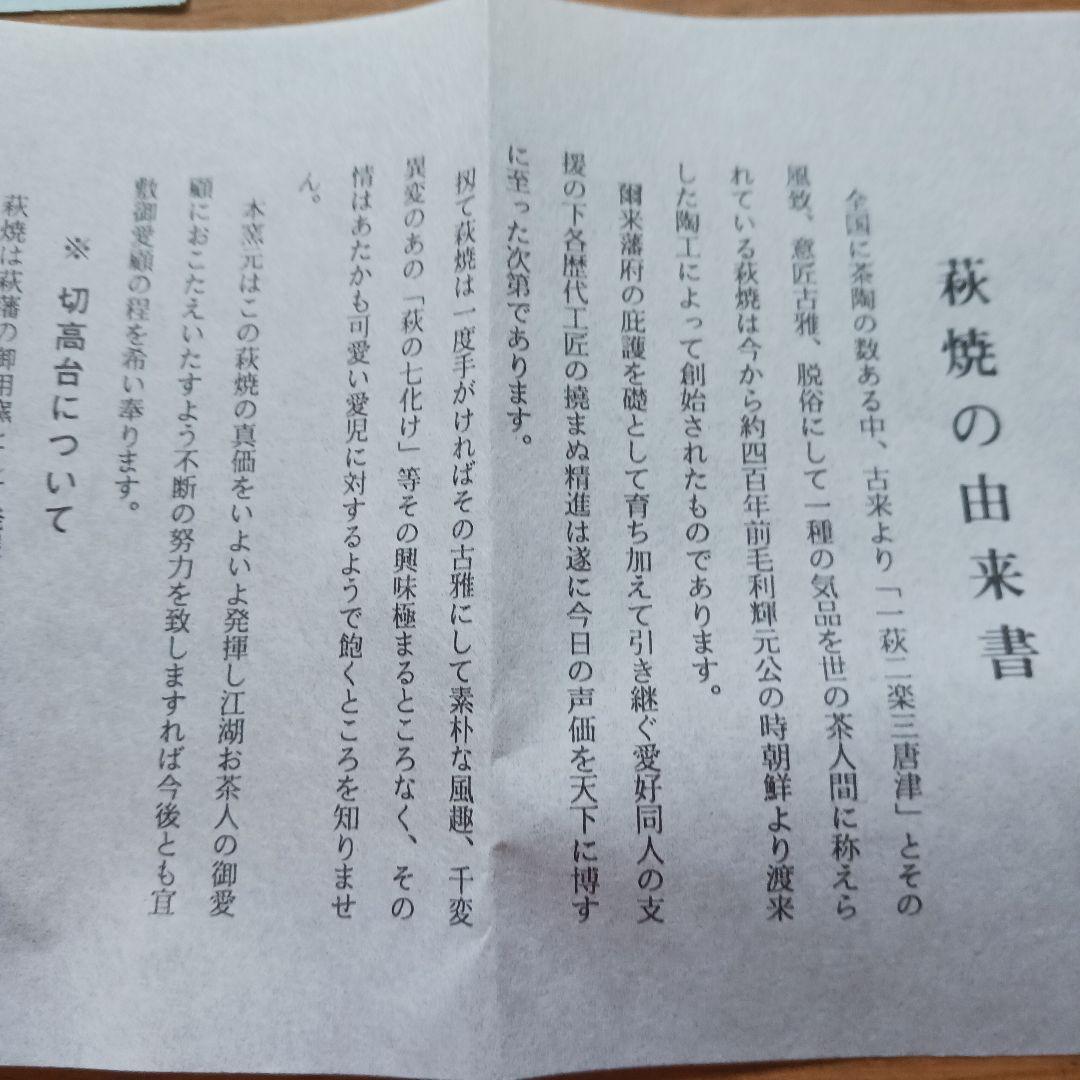 萩焼の由来書
全国に茶陶の数ある中、古来より「一萩二楽三唐津」とその
風致、意匠古雅、脱俗にして一種の気品を世の茶人間に称えら
れている萩焼は今から約四百年前毛利輝元公の時朝鮮より渡来
した陶工によって創始されたものであります。
爾来藩府の庇護を礎として育ち加えて引き継ぐ愛好同人の支
援の下各歴代工匠の撓まぬ精進は遂に今日の声価を天下に博す
に至った次第であります。
扨て萩焼は一度手がければその古雅にして素朴な風趣、千変
異変のあの「萩の七化け」等その興味極まるところなく、その
情はあたかも可愛い愛児に対するようで飽くところを知りませ
ん。
本窯元はこの萩焼の真価をいよいよ発揮し江湖お茶人の御愛
顧におこたえいたすよう不断の努力を致しますれば今後とも宜
敷御愛顧の程を希い奉ります。
※ 切高台について
萩焼は萩藩の御用窯として